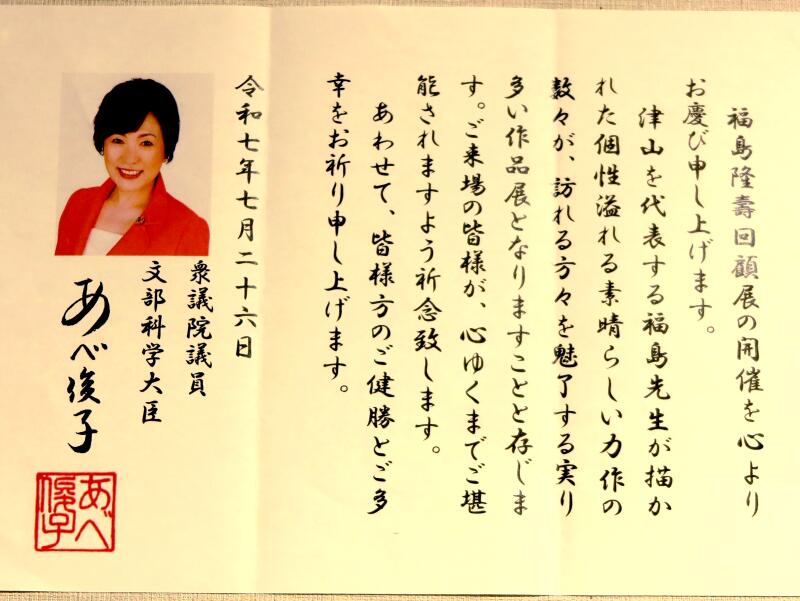 福島隆壽回顧展の開催を心より
お慶び申し上げます。
津山を代表する福島先生が描か
れた個性溢れる素晴らしい力作の
数々が、訪れる方々を魅了する実り
多い作品展となりますことと存じま
す。ご来場の皆様が、心ゆくまでご堪
能されますよう祈念致します。
あわせて、皆様方のご健勝とご多
幸をお祈り申し上げます。
令和七年七月二十六日
衆議院議員
文部科学大臣
あべ俊子
あべ
俊子